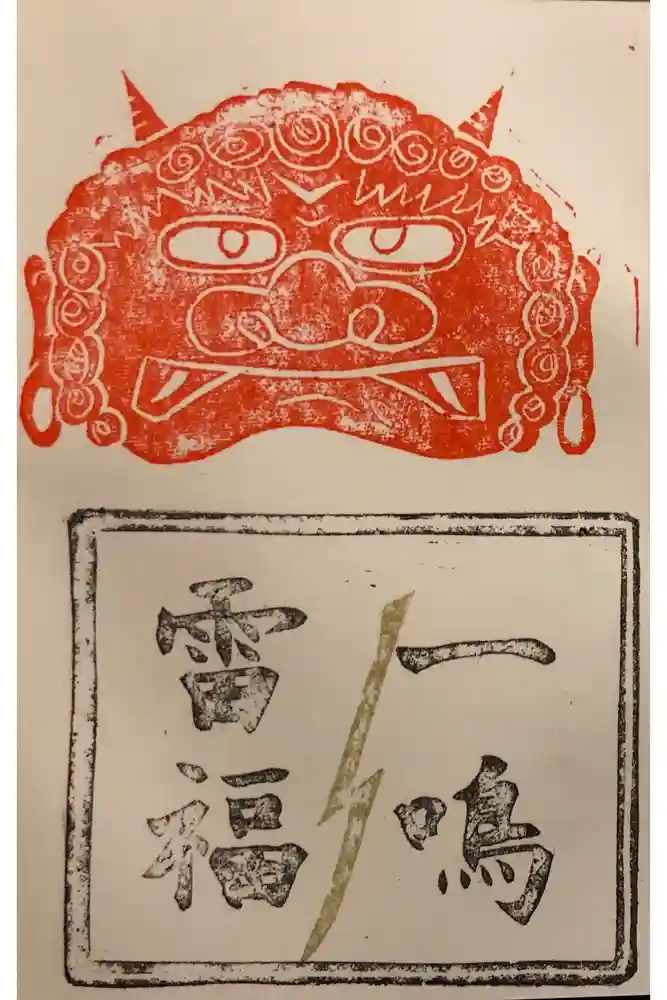 一鳴
雷福